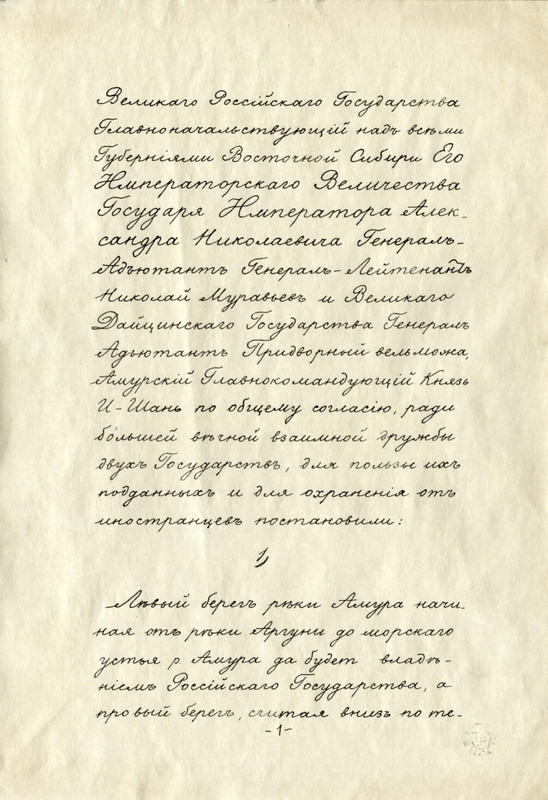 Великаго Россійскаго Государства
Главноначальствующій надъ всѣми
Губерніями Восточной Сибири Его
Императорскаго Величества
Государя Императора Алек-
сандра Николаевича Генералъ-
Адъютантъ Генералъ-Лейтенантъ
Николай Муравьевъ и Великаго
Дайцинскаго Государства Генералъ
Адъютантъ Придворний вельможа,
Амурскій Главнокомандующій Князь
И-Шань по общему согласію, ради
бо́льшей вѣчной взаимной дружбы
двухъ Государствъ, для пользы ихъ
подданныхъ и для охраненія отъ
иностранцевъ постановили:
1)
Лѣвый берегъ рѣки Амура начи-
ная отъ рѣки Аргуни до морскаго
устья р. Амура да будетъ владѣ-
ніемъ Россійскаго Государства, а
провый берегъ, считая внизъ по те-
-1-